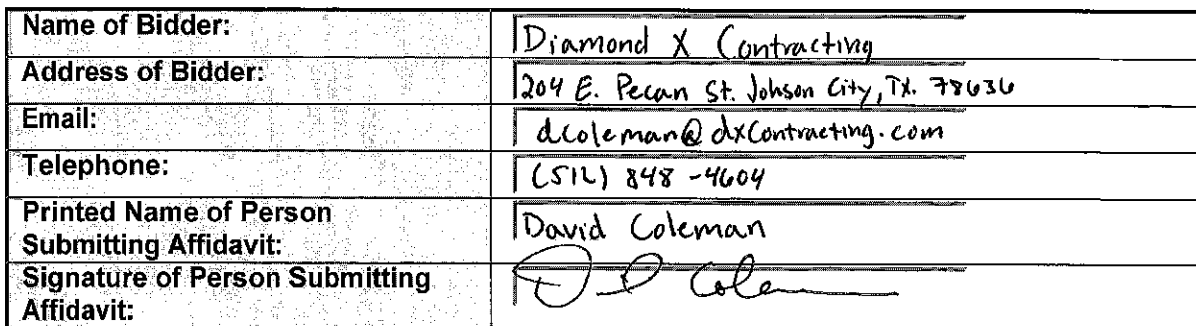 Name of Bidder: Diamond X Contracting
Address of Bidder: 204 E. Pecan St. Johson City, TX. 78636
Email: dcoleman@dxcontracting.com
Telephone: (512) 848-4604
Printed Name of Person
Submitting Affidavit: David Coleman
Signature of Person Submitting
Affidavit: D P Coleman